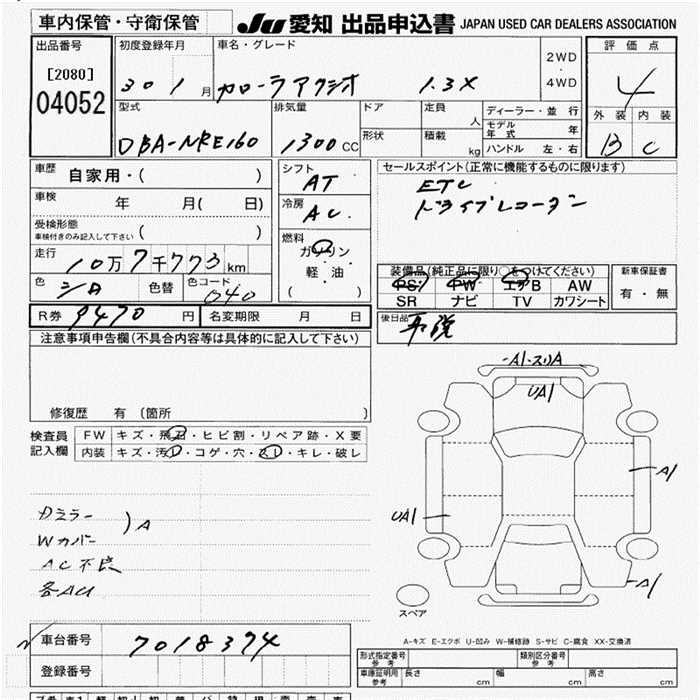 車内保管・守衛保管
JU 愛知 出品申込書 JAPAN USED CAR DEALERS ASSOCIATION
出品番号
[2080]
04052
初度登録年月
30 1 月
車名・グレード
カローラアクシオ 1.3X
2WD
・
4WD
評価点
4
外装 内装
B C
型式
DBA-NRE160
排気量
1300 CC
ドア
形状
定員
人
積載
kg
ディーラー・並行
モデル年式 年
ハンドル 左・右
車歴
自家用・( )
車検
年 月( 日)
受検形態
車検付きのみ記入して下さい ( )
走行
10万7千773 km
色
シロ
色替
色コード
040
シフト
AT
冷房
AC
燃料
ガソリン
軽・油
( )
セールスポイント(正常に機能するものに限ります)
ETC
ドライブレコーダー
装備品(純正品に限り○をつけてください)
PS PW エアB AW
SR ナビ TV カワシート
新車保証書
有・無
R券 9470 円 名変期限 月 日
後日品
注意事項申告欄(不具合内容等は具体的に記入して下さい)
修復歴 有(箇所 )
検査員
記入欄
FW キズ・飛石・ヒビ割・リペア跡・X要
内装 キズ・汚レ・コゲ・穴・スレ・キレ・破レ
カミラー
Wカバー
) A
AC不良
各AU
A1・スリA
UA1
A1
UA1
A1
スペア
A-キズ E-エクボ U-凹み W-補修跡 S-サビ C-腐食 XX-交換済
車台番号 7018374
登録番号
形式指定番号
参考
類別区分番号
参考
車庫証明用
参考
長さ cm 幅 cm 高さ cm